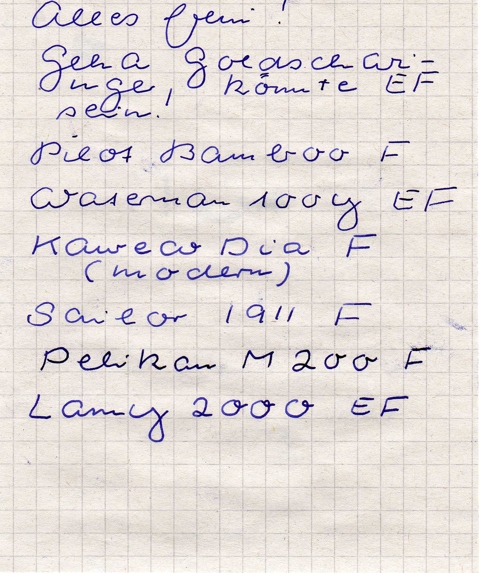 Alles fein!
Geha Goldschwi=
nge, könnte EF
sein!
Pilot Bamboo F
Waterman 100y EF
Kaweco Dia F
(modern)
Sailor 1911 F
Pelikan M 200 F
Lamy 2000 EF